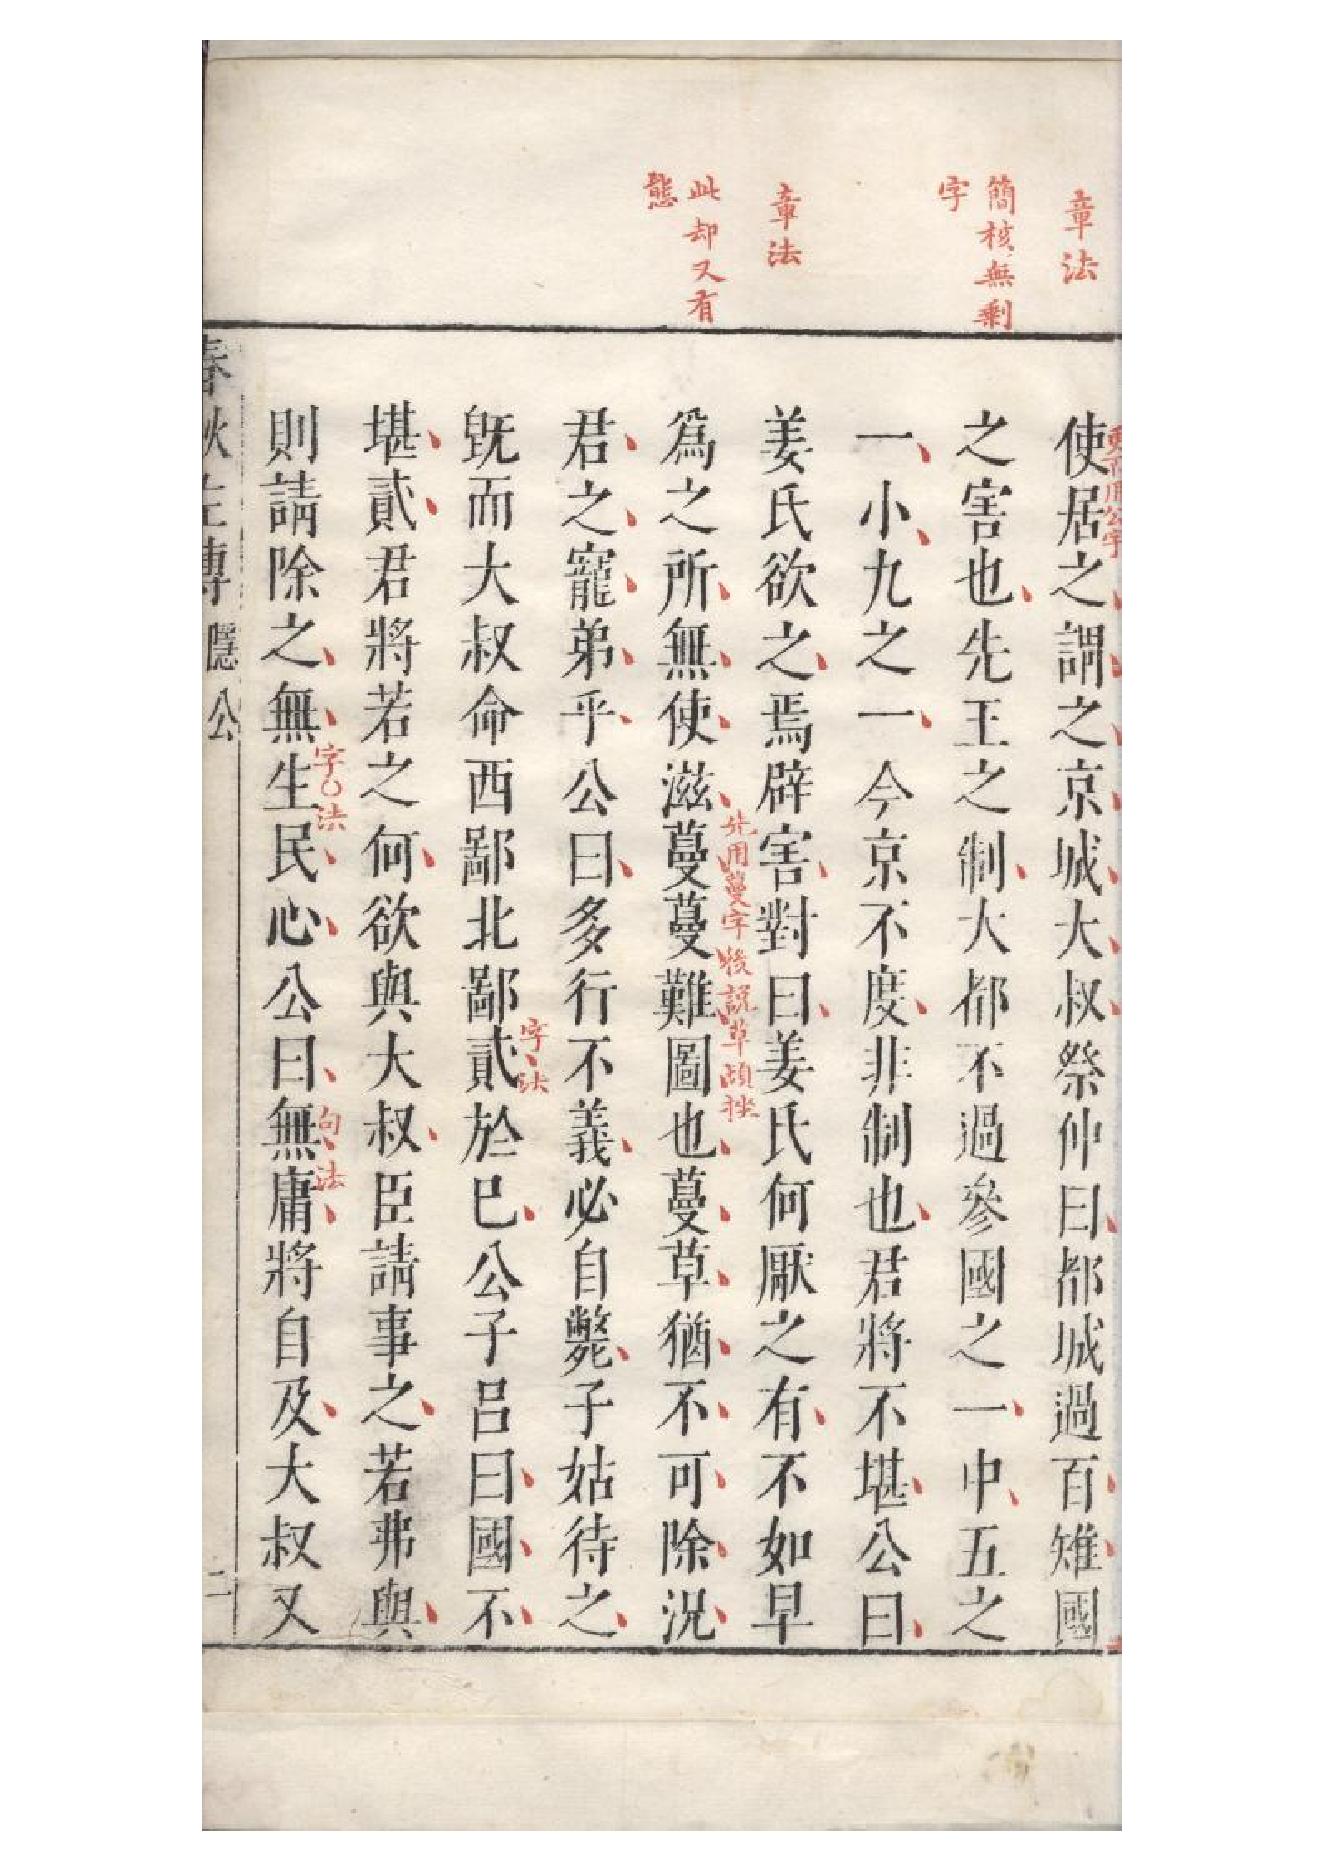 章法
簡核無剩
字
章法
此却又有
態
使居之謂之京城大叔祭仲曰都城過百雉國
之害也先王之制大都不過參國之一中五之
一小九之一今京不度非制也君將不堪公曰
姜氏欲之焉辟害對曰姜氏何厭之有不如早
先用蔓字後說草頓挫
爲之所無使滋蔓蔓難圖也蔓草猶不可除況
君之寵弟乎公曰多行不義必自斃子姑待之
字法
旣而大叔命西鄙北鄙貳於已公子呂曰國不
堪貳君將若之何欲與大叔臣請事之若弗與
字法
句法
則請除之無生民心公曰無庸將自及大叔又
春秋左傳
隱公
二